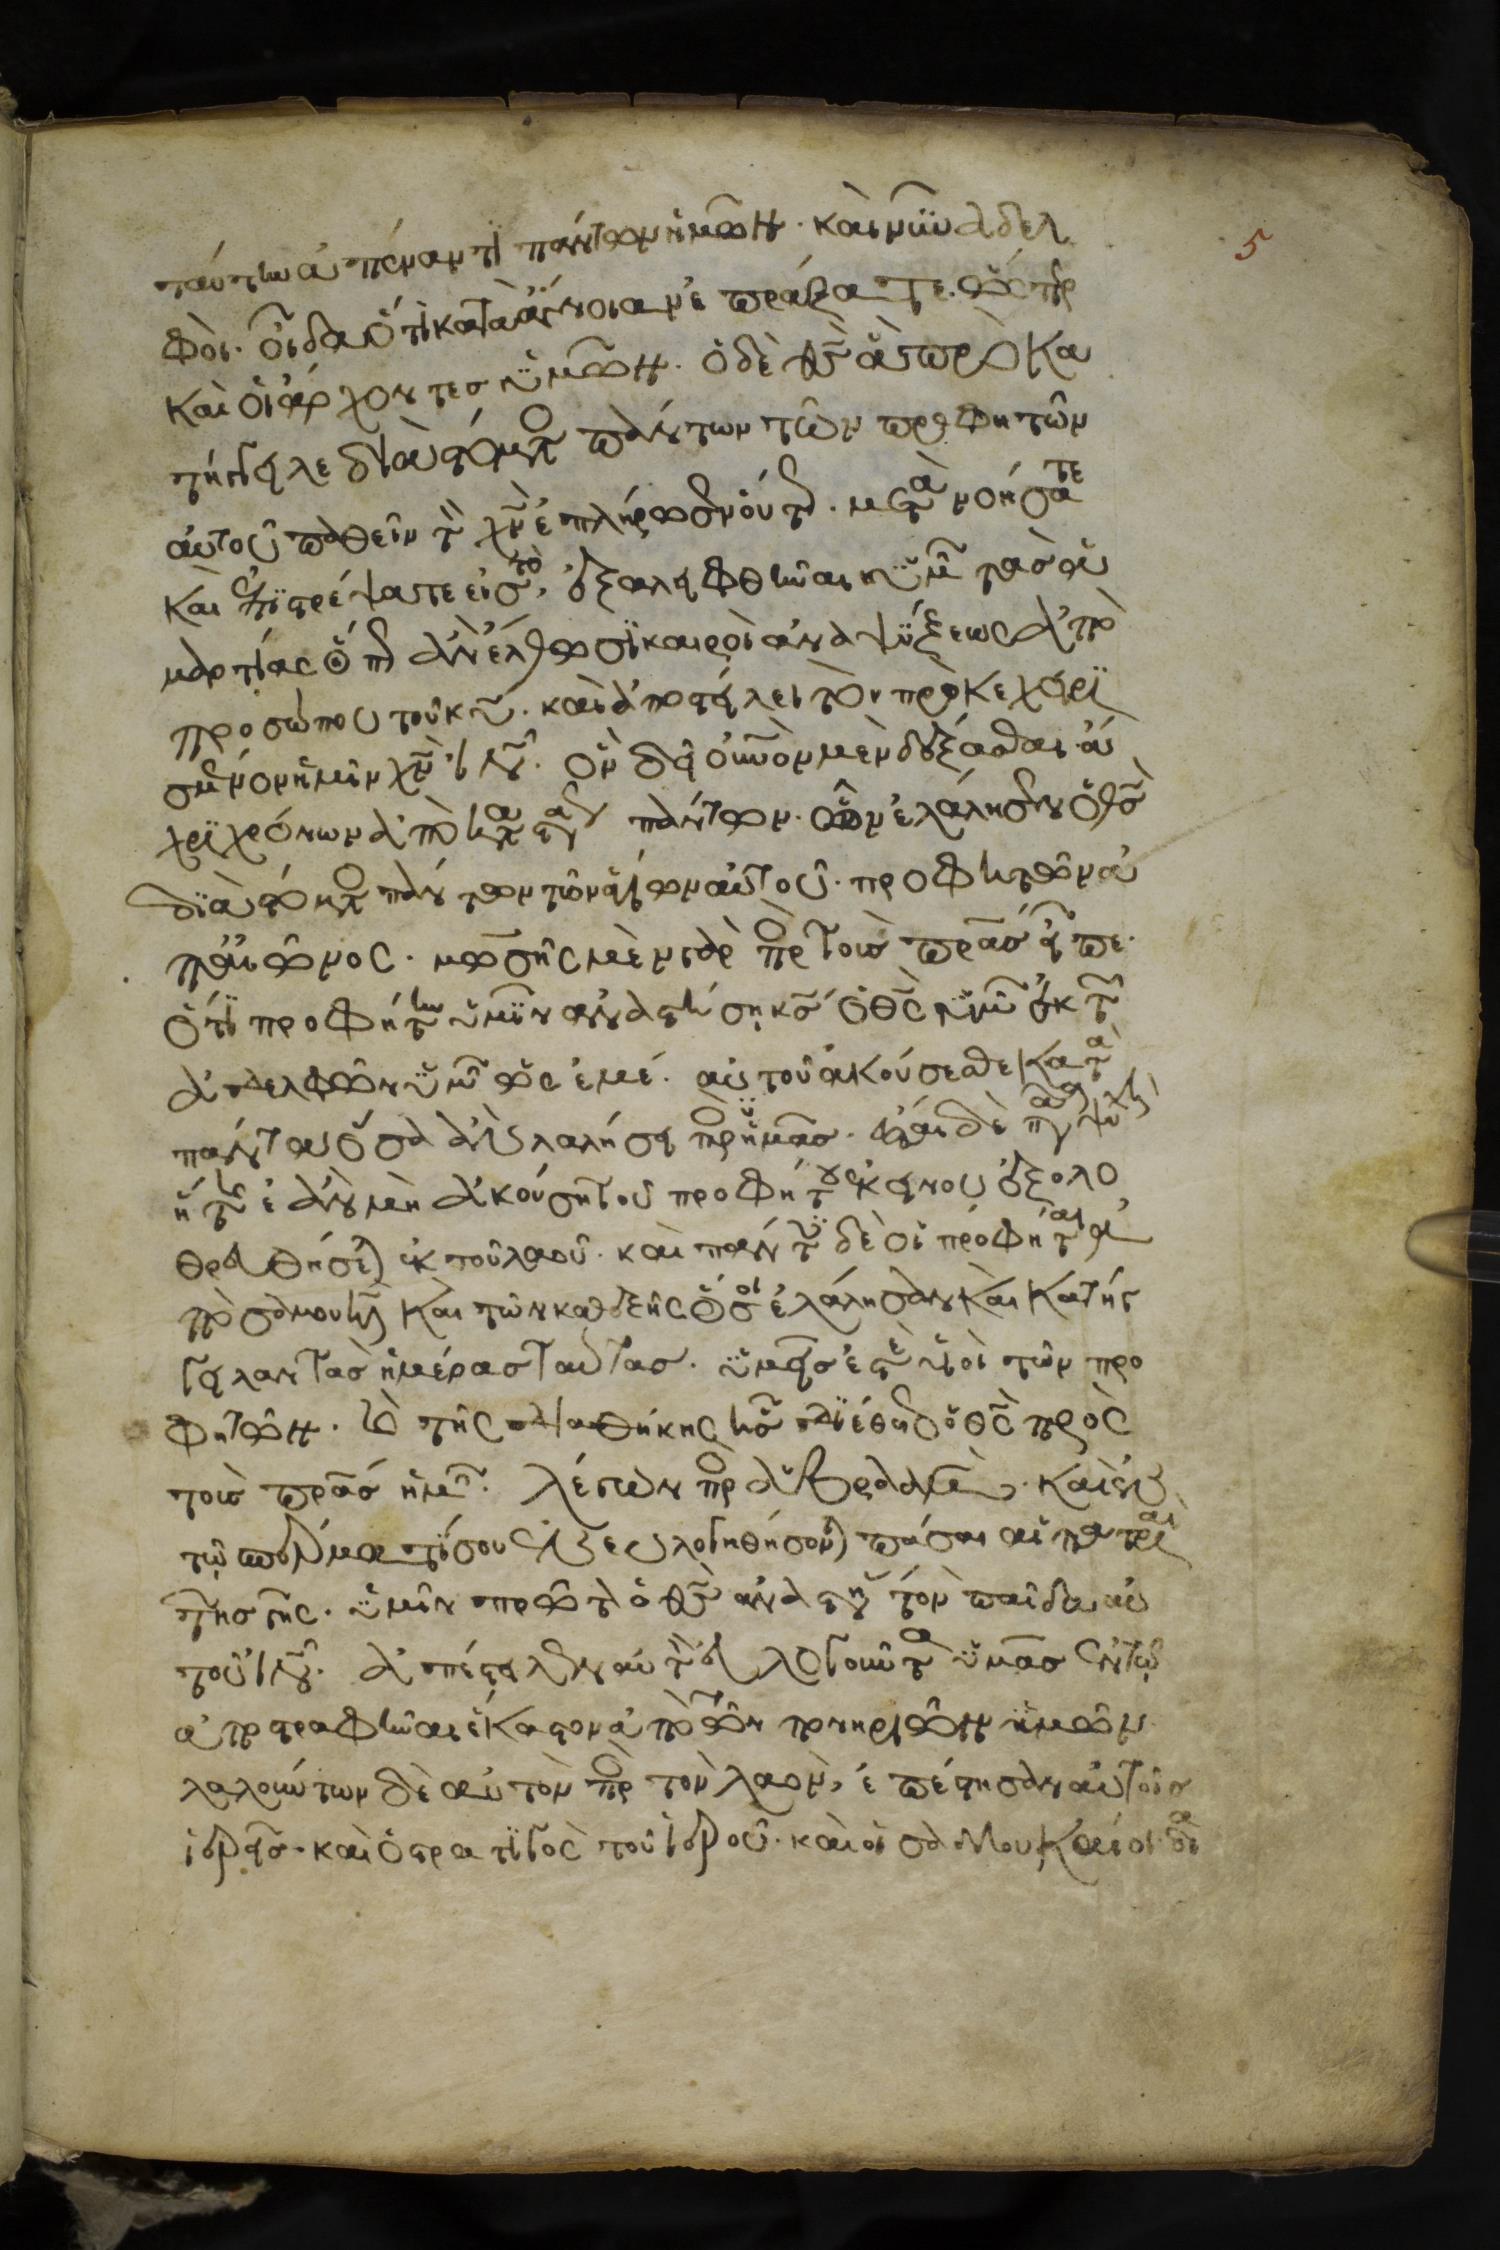 5
ταύτην ἀπέναντι πάντων ὑμῶν. καὶ νῦν ἀδελ
φοί. οἶδα ὅτι κατὰ ἄγνοιαν ἐπράξατε. ὥσπερ
καὶ οἱ ἄρχοντες ὑμῶν. ὁ δὲ θς ἃ προκα
τήγγειλε διὰ στόματ πάντων τῶν προφητῶν
αὐτοῦ παθεῖν τὸν χν ἐπλήρωσεν οὕτω. μετανοήσατε
καὶ ἐπιστρέψατε εἰς τὸ, ἐξαλειφθῆναι ὑμῶν τὰς ἁ
μαρτίας ὅπως ἂν ἔλθωσι καιροὶ ἀναψύξεως ἀπὸ
προσώπου τοῦ κυ. καὶ ἀποστείλει τὸν προκεχειρι
σμένον ὑμῖν χν ιν. ὃν δεῖ οὐνον μὲν δέξασθαι ἄ
χρι χρόνων ἀποκαταστάσεως πάντων. ὧν ἐλάλησεν ὁ θς
διὰ στόματ πάντων τῶν ἁγίων αὐτοῦ προφητῶν ἀ
π αἰῶνος. μωσῆς μὲν γὰρ πρὸς τοὺς πρας εἶπε.
ὅτι προφήτην ὑμῖν ἀναστήσει κς ὁ θς ὑμῶν ἐκ τῶν
ἀδελφῶν ὑμῶν ὡς ἐμέ. αὐτοῦ ἀκούσεσθε κατὰ
πάντα ὅσα ἂν λαλήσει πρὸς ὑμᾶς. ἔσται δὲ πᾶσα ψυχὴ
ἥτις ἐὰν μὴ ἀκούσῃ τοῦ προφήτου ἐκείνου ἐξολο
θρευθήσεται ἐκ τοῦ λαοῦ. καὶ πάντες δὲ οἱ προφῆται ἀ
πὸ σαμουὴλ καὶ τῶν καθεξῆς ὅσοι ἐλάλησαν καὶ κατήγ
γειλαν τὰς ἡμέρας ταύτας. ὑμεῖς ἐστὲ υἱοὶ τῶν προ
φητῶν. καὶ τῆς διαθήκης ἧς διέθετο ὁ θς πρὸς
τοὺς πρας ἡμῶν. λέγων πρὸς ἀβραάμ. καὶ ἐν
τῷ σπέρματί σου ἐνευλογηθήσονται πᾶσαι αἱ πατριαὶ
τῆς γῆς. ὑμῖν πρῶτον ὁ θς ἀναστήσας τὸν παῖδα αὐ
τοῦ ιν. ἀπέστειλεν αὐτὸν εὐλογοῦντα ὑμᾶς ἐν τῷ
ἀποστρέφειν ἕκαστον ἀπὸ τῶν πονηριῶν ὑμῶν
λαλούντων δὲ αὐτῶν πρὸς τὸν λαόν, ἐπέστησαν αὐτοῖς
ἱερεῖς. καὶ ὁ στρατηγὸς τοῦ ἱεροῦ. καὶ οἱ σαδδουκαῖοι δια